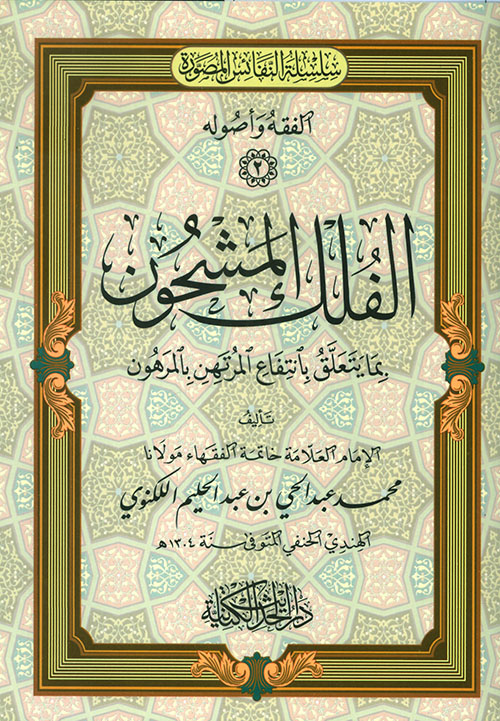 سِلْسِلَةُ النَّفَائِسِ المُصَوَّرَة
الفقه وأصوله
٢
الفُلك المشحُون
بِمَا يَتَعَلَّقُ بِانْتِفَاعِ المُرْتَهِنِ بِالمَرْهُون
تأليفُ
الإمام العلّامة خاتمة الفقهاء مولانا
محمد عبد الحي بن عبد الحليم اللكنوي
الهندي الحنفي المتوفى سنة ١٣٠٤هـ